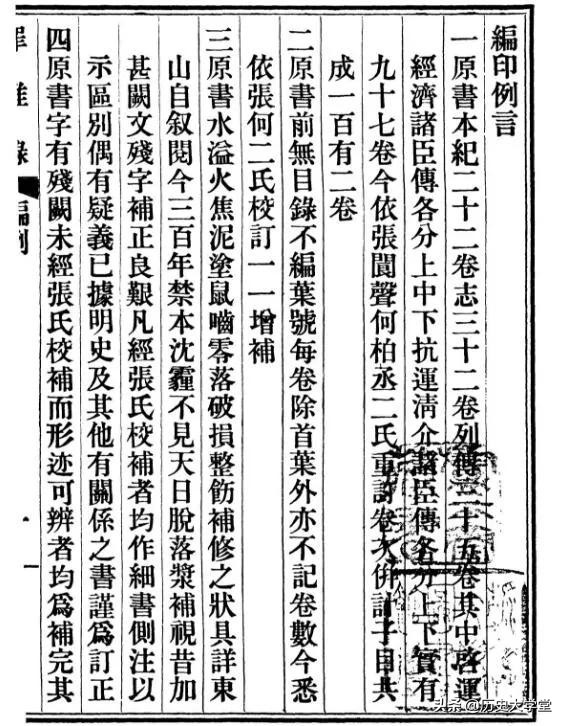 編印例言
一原書本紀二十二卷志三十二卷列傳三十五卷其中啓運
經濟諸臣傳各分上中下抗運淸介諸臣傳各分上下實有
九十七卷今依張閬聲何柏丞二氏重訂卷次併計子目共
成一百有二卷
二原書前無目錄不編葉號每卷除首葉外亦不記卷數今悉
依張何二氏校訂一一增補
三原書水溢火焦泥塗鼠嚙零落破損整飭補修之狀具詳東
山自叙閱今三百年禁本沈霾不見天日脫落漿補視昔加
甚闕文殘字補正良艱凡經張氏校補者均作細書側注以
示區別偶有疑義已據明史及其他有關係之書謹爲訂正
四原書字有殘闕未經張氏校補而形迹可辨者均爲補完其
罪惟錄 編例 一
头条@历史大学堂